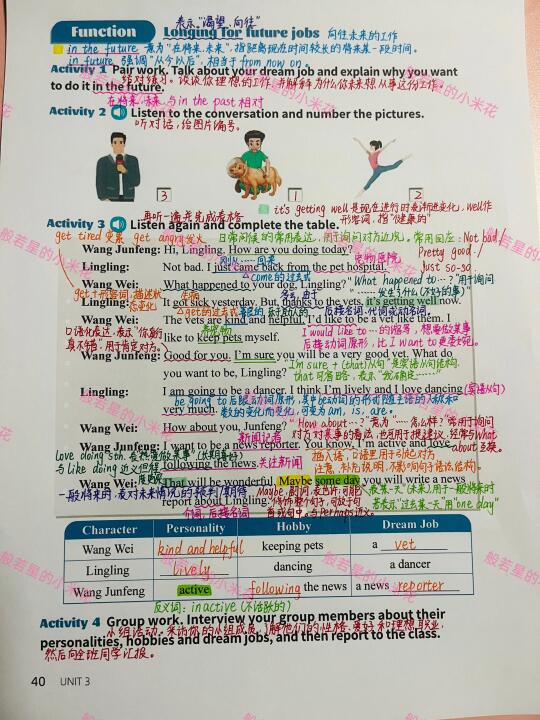 表示"渴望、向往"
Function Longing for future jobs 向往未来的工作
in the future 意为"在将来、未来",指距离现在时间较长的将来某一段时间。
in future 强调"从今以后",相当于from now on.
Activity 1 Pair work. Talk about your dream job and explain why you want
to do it in the future.
结对练习。谈谈你理想的工作,并解释为什么你未来想从事这份工作。
在将来,未来,与in the past 相对
Activity 2 Listen to the conversation and number the pictures.
听对话,给图片编号。
3 1 2
it's getting well是现在进行时表渐进变化,well作
形容词,指"健康的"
再听一遍并完成表格
Activity 3 Listen again and complete the table.
get tired 变累 get angry 发火
日常问候的常用表达,用于询问对方近况,常用回应:Not bad/
Pretty good/
Just so-so.
Wang Junfeng: Hi, Lingling. How are you doing today?
宠物医院
Lingling: Not bad. I just came back from the pet hospital.
come的过去式
Wang Wei: What happened to your dog, Lingling?
"What happened to…?"用于询问
"……发生了什么(不好的事)"
get+形容词,描述状态变化
生病
Lingling: It got sick yesterday. But, thanks to the vets, it's getting well now.
get的过去式
Wang Wei: The vets are kind and helpful. I'd like to be a vet like them. I
like to keep pets myself.
I would like to…的缩写,想要做某事
后接动词原形,比I want to更委婉。
口语化表达,表示"你蛮行
真不错",用于肯定对方。
Wang Junfeng: Good for you. I'm sure you will be a very good vet. What do
you want to be, Lingling?
"I'm sure + (that)从句"是宾语从句结构,
that可省略,表示"我确定……"
Lingling: I am going to be a dancer. I think I'm lively and I love dancing
very much.
(宾语从句)
be going to 后跟动词原形,其中be动词的形式随主语的人称和
数的变化而变化,可变为am, is, are.
Wang Wei: How about you, Junfeng?
"How about…?"意为"……怎么样?"常用于询问
对方对某事的看法,也可用于提建议,经常与What
about互换。
新闻记者
Wang Junfeng: I want to be a news reporter. You know, I'm active and love
following the news.
关注新闻
love doing sth. 会热爱做某事(长期喜好)
与like doing 近义但程
插入语,口语里用于引起对方
注意、补充说明,不影响句子语法结构
Wang Wei: That will be wonderful. Maybe some day you will write a news
report about Lingling.
一般将来时,表对未来情况的预判/期待
介词,后接名词
Maybe,副词,表也许;可能
修饰整个句子,可放于句
首或句中,与Perhaps近义。
表"某一天"(未来),用于一般将来时
若表示"过去某一天"用"one day"
Character Personality Hobby Dream Job
Wang Wei kind and helpful keeping pets a vet
Lingling lively dancing a dancer
Wang Junfeng active following the news a news reporter
反义词:inactive(不活跃的)
Activity 4 Group work. Interview your group members about their
personalities, hobbies and dream jobs, and then report to the class.
小组活动。采访你的小组成员,了解他们的性格、爱好和理想职业,
然后向全班同学汇报。
40 UNIT 3
般若星的小米花